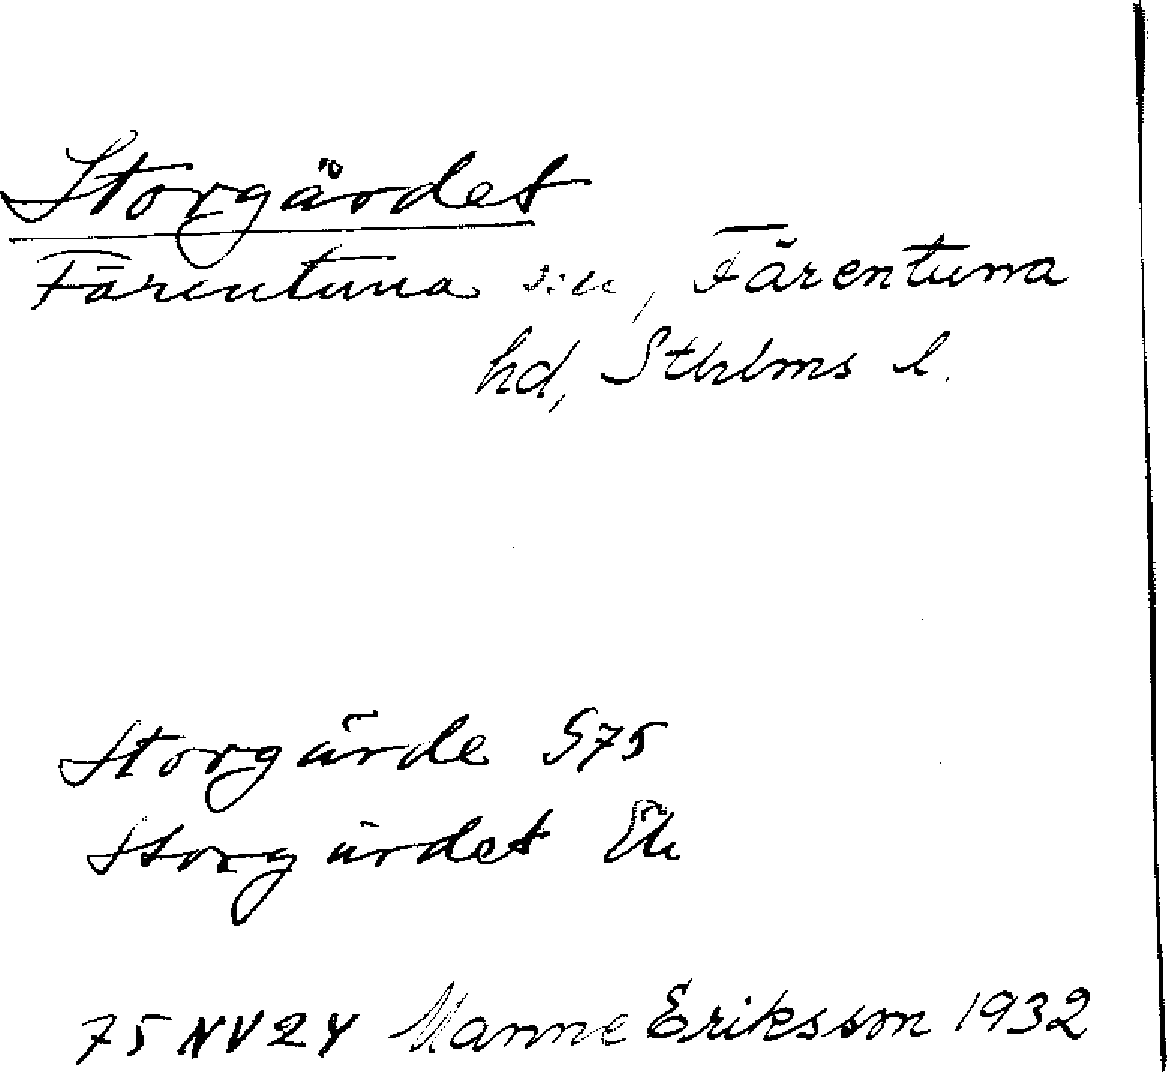 Storgärdet
Färentuna sn, Färentuna
hd, Sthlms l.
Storgärde S75
Storgärdet Ek
75 NV 24 Manne Eriksson 1932